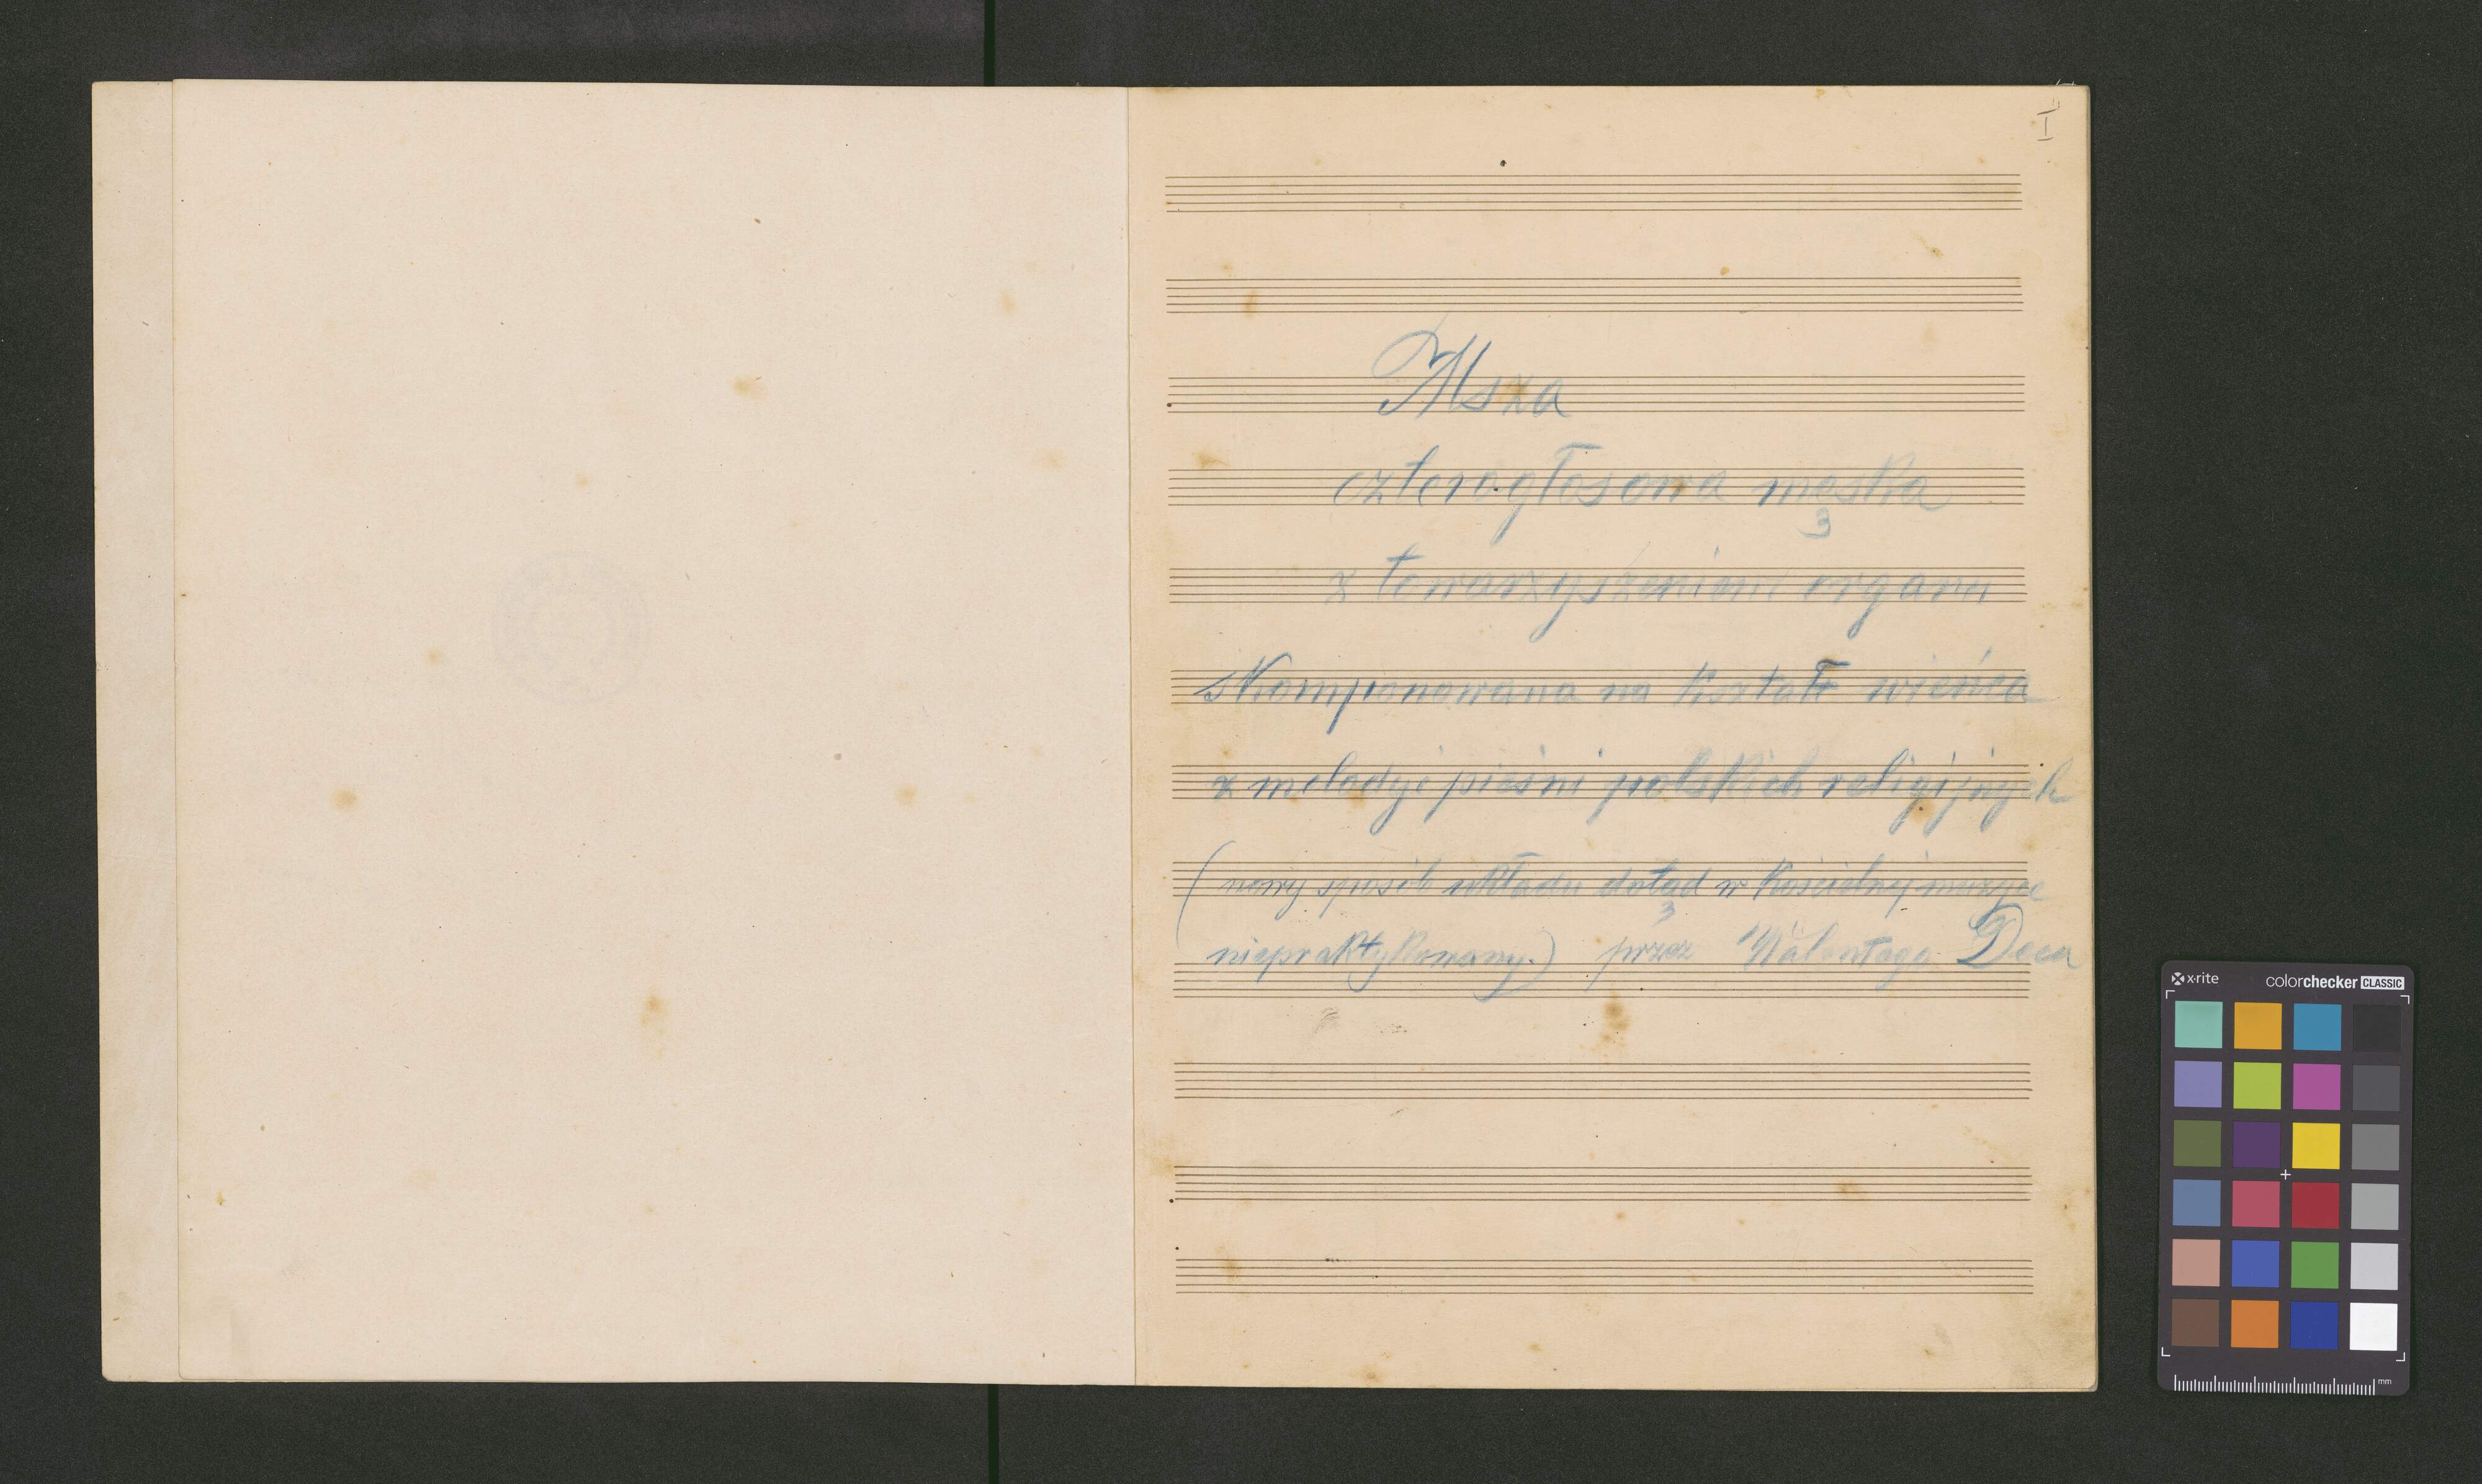 I
Msza
czterogłosowa męska
z towarzyszeniem organu
skomponowana na kształt wieńca
z melodyi pieśni polskich religijnych
(nowy sposób układu dotąd w kościelnej muzyce
niepraktykowany.) przez Walentego Deca
x·rite colorchecker CLASSIC
mm